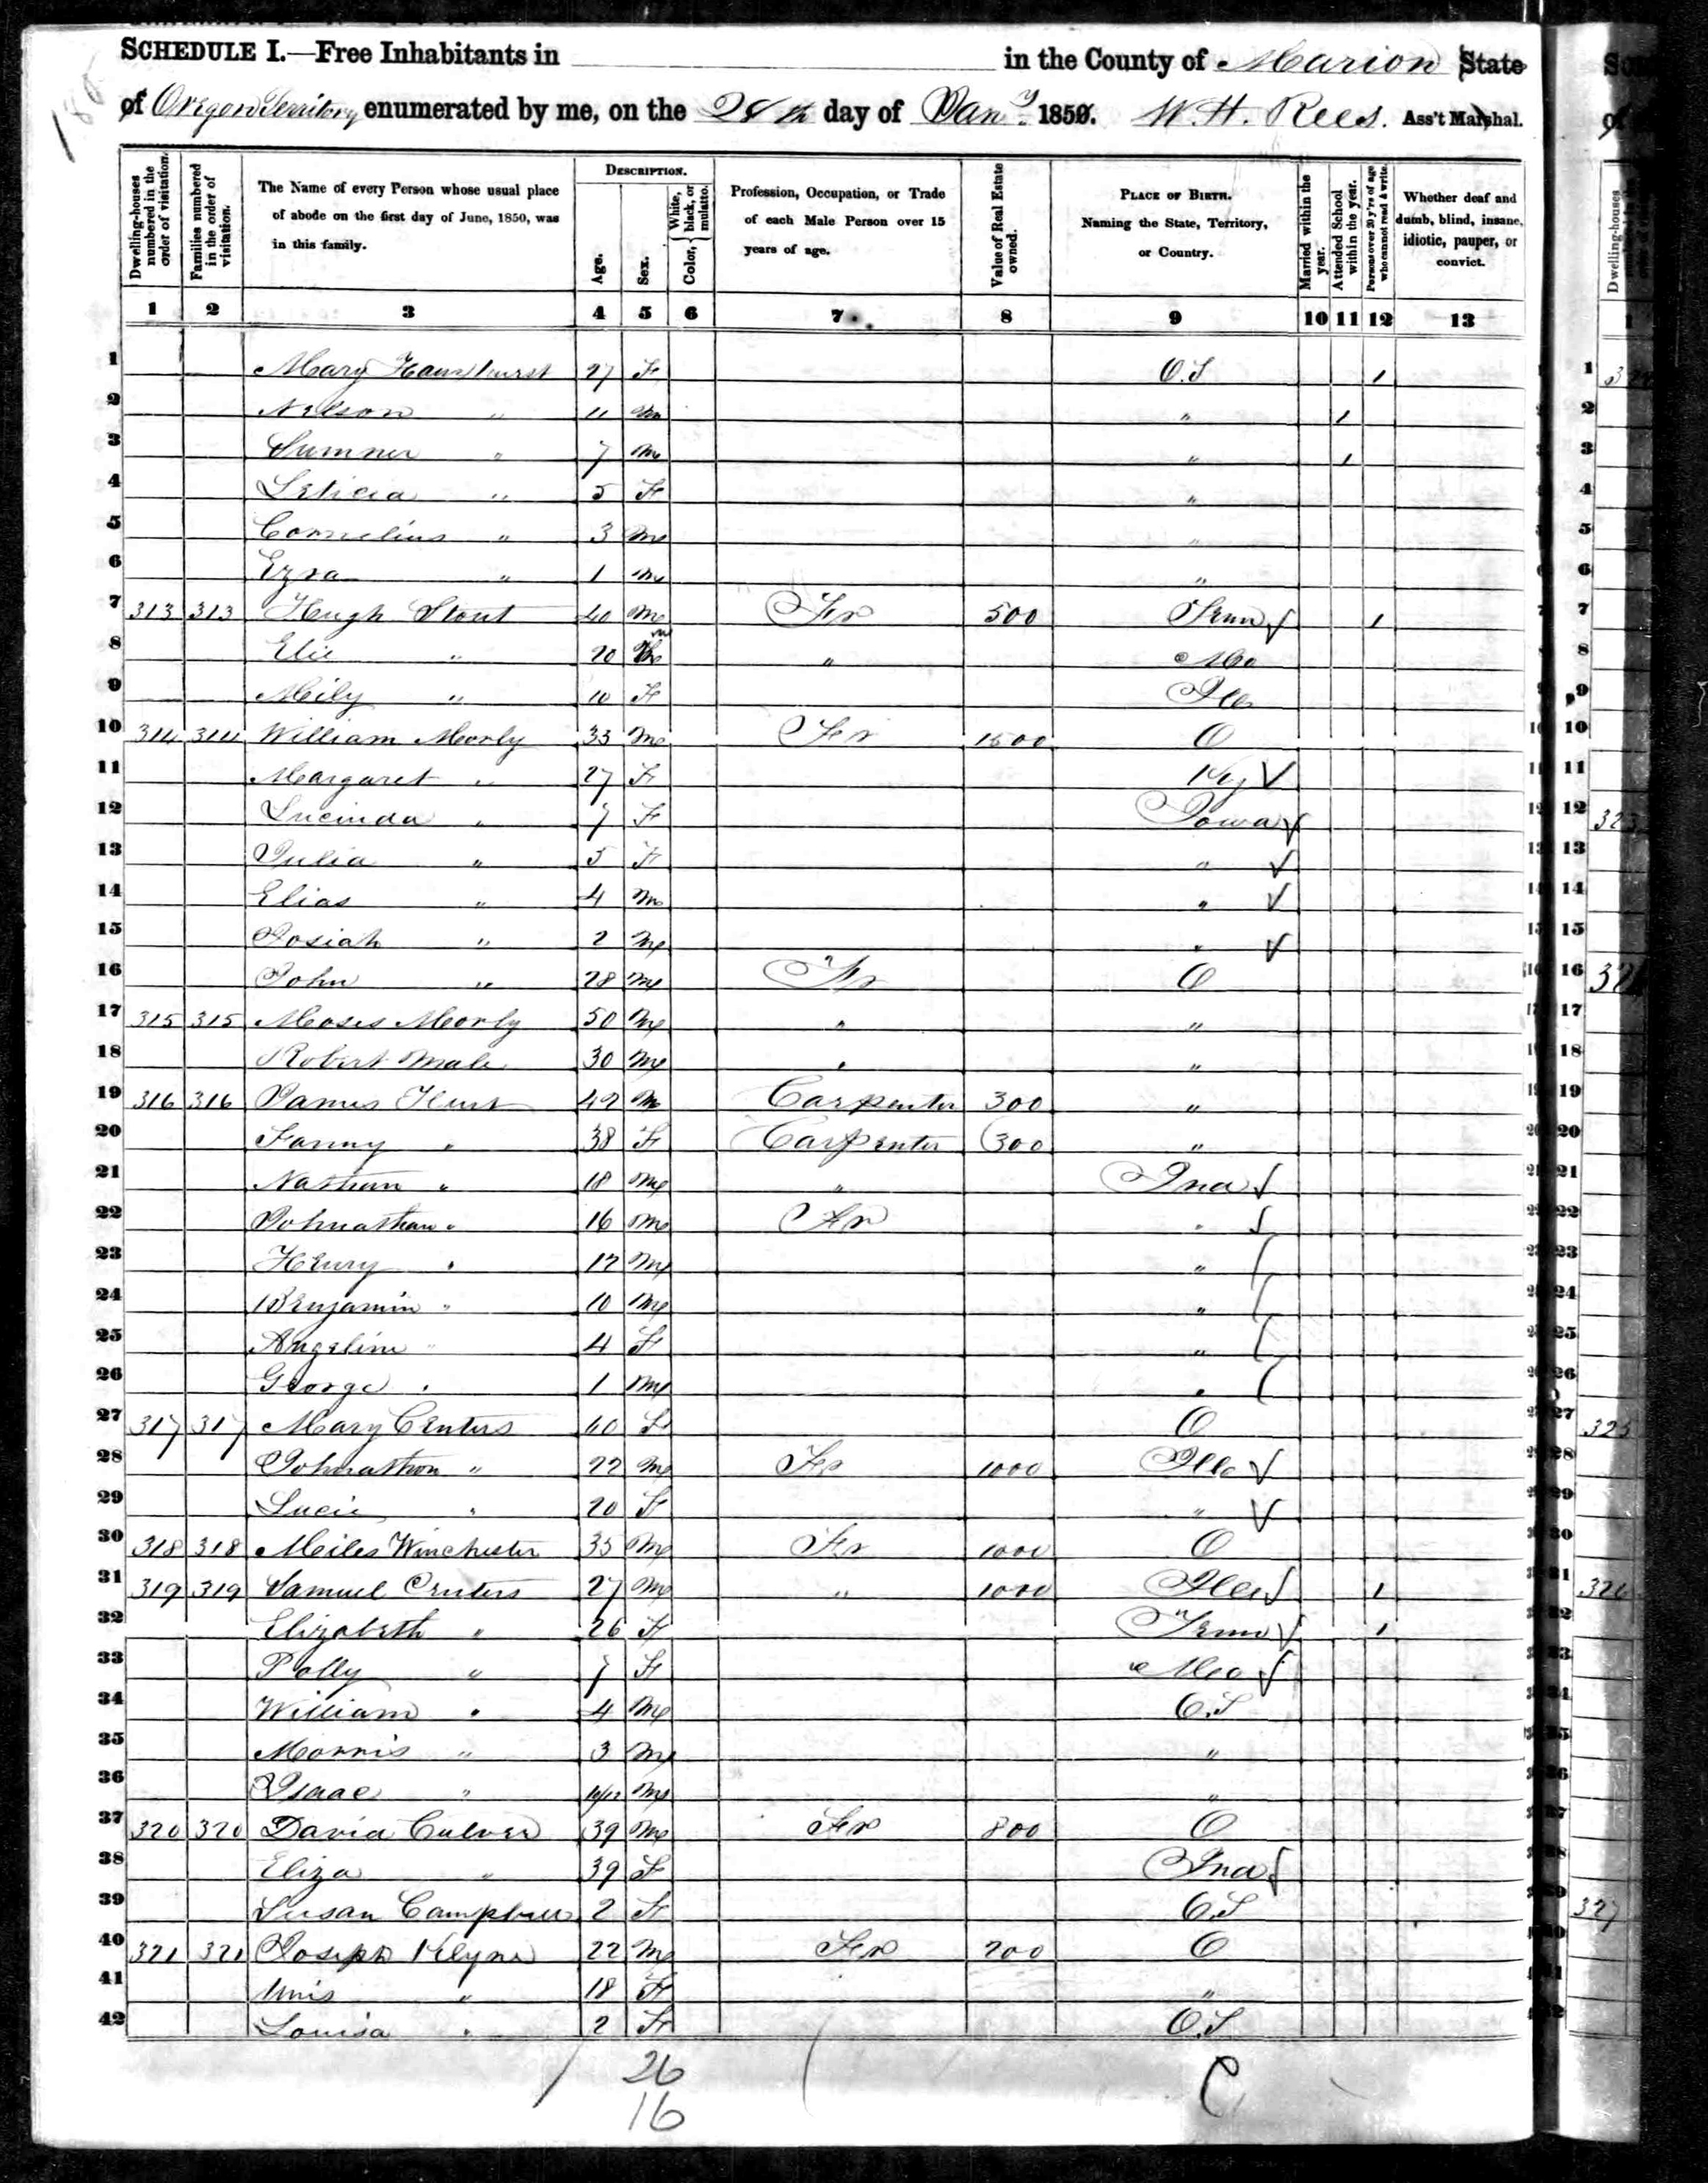 SCHEDULE I.—Free Inhabitants in in the County of Marion State
of Oregon Territory enumerated by me, on the 28th day of Jany 1850. W. H. Rees. Ass't Marshal.
Dwelling-houses numbered in the order of visitation.
Families numbered in the order of visitation.
The Name of every Person whose usual place of abode on the first day of June, 1850, was in this family.
DESCRIPTION.
Age.
Sex.
Color, { White, black, or mulatto.
Profession, Occupation, or Trade of each Male Person over 15 years of age.
Value of Real Estate owned.
PLACE OF BIRTH. Naming the State, Territory, or Country.
Married within the year.
Attended School within the year.
Persons over 20 y'rs of age who cannot read & write.
Whether deaf and dumb, blind, insane, idiotic, pauper, or convict.
1 2 3 4 5 6 7 8 9 10 11 12 13
1 Mary 27 F O.T 1
2 Nelson " 11 M " 1
3 Sumner " 7 M " 1
4 Leticia " 5 F "
5 Cornelius " 3 M "
6 Ezra " 1 M "
7 313 313 Hugh Stout 40 M Fr 500 Tenn √ 1
8 Elie " 20 M " Mo
9 Mily " 10 F Ills
10 314 314 William Morly 33 M Fr 1500 O
11 Margaret " 27 F Ky √
12 Lucinda " 7 F Iowa √
13 Julia " 5 F " √
14 Elias " 4 M " √
15 Josiah " 2 M " √
16 John " 28 M Fr O
17 315 315 Moses Morly 50 M " "
18 Robert Male 30 M " "
19 316 316 James 42 M Carpenter 300 "
20 Fanny " 38 F Carpenter (300 "
21 Nathan " 18 M " Ina √
22 Johnathan " 16 M Fr " √
23 Henry " 12 M "
24 Benjamin " 10 M "
25 Angeline " 4 F "
26 George " 1 M "
27 317 317 Mary Centers 60 F O
28 Johnathon " 22 M Fr 1000 Ills √
29 Lucie " 20 F " √
30 318 318 Miles Winchester 35 M Fr 1000 O
31 319 319 Samuel Centers 27 M " 1000 Ills √ 1
32 Elizabeth " 26 F Tenn √ 1
33 Polly " 7 F Mo √
34 William " 4 M O.T
35 Morris " 3 M "
36 Isaac " M "
37 320 320 David Culver 39 M Fr 800 O
38 Eliza " 39 F Ina √
39 Susan Campbell 2 F O.T
40 321 321 Joseph Klyne 22 M Fr 200 O
41 Unis " 18 F "
42 Louisa " 2 F O.T
26
16